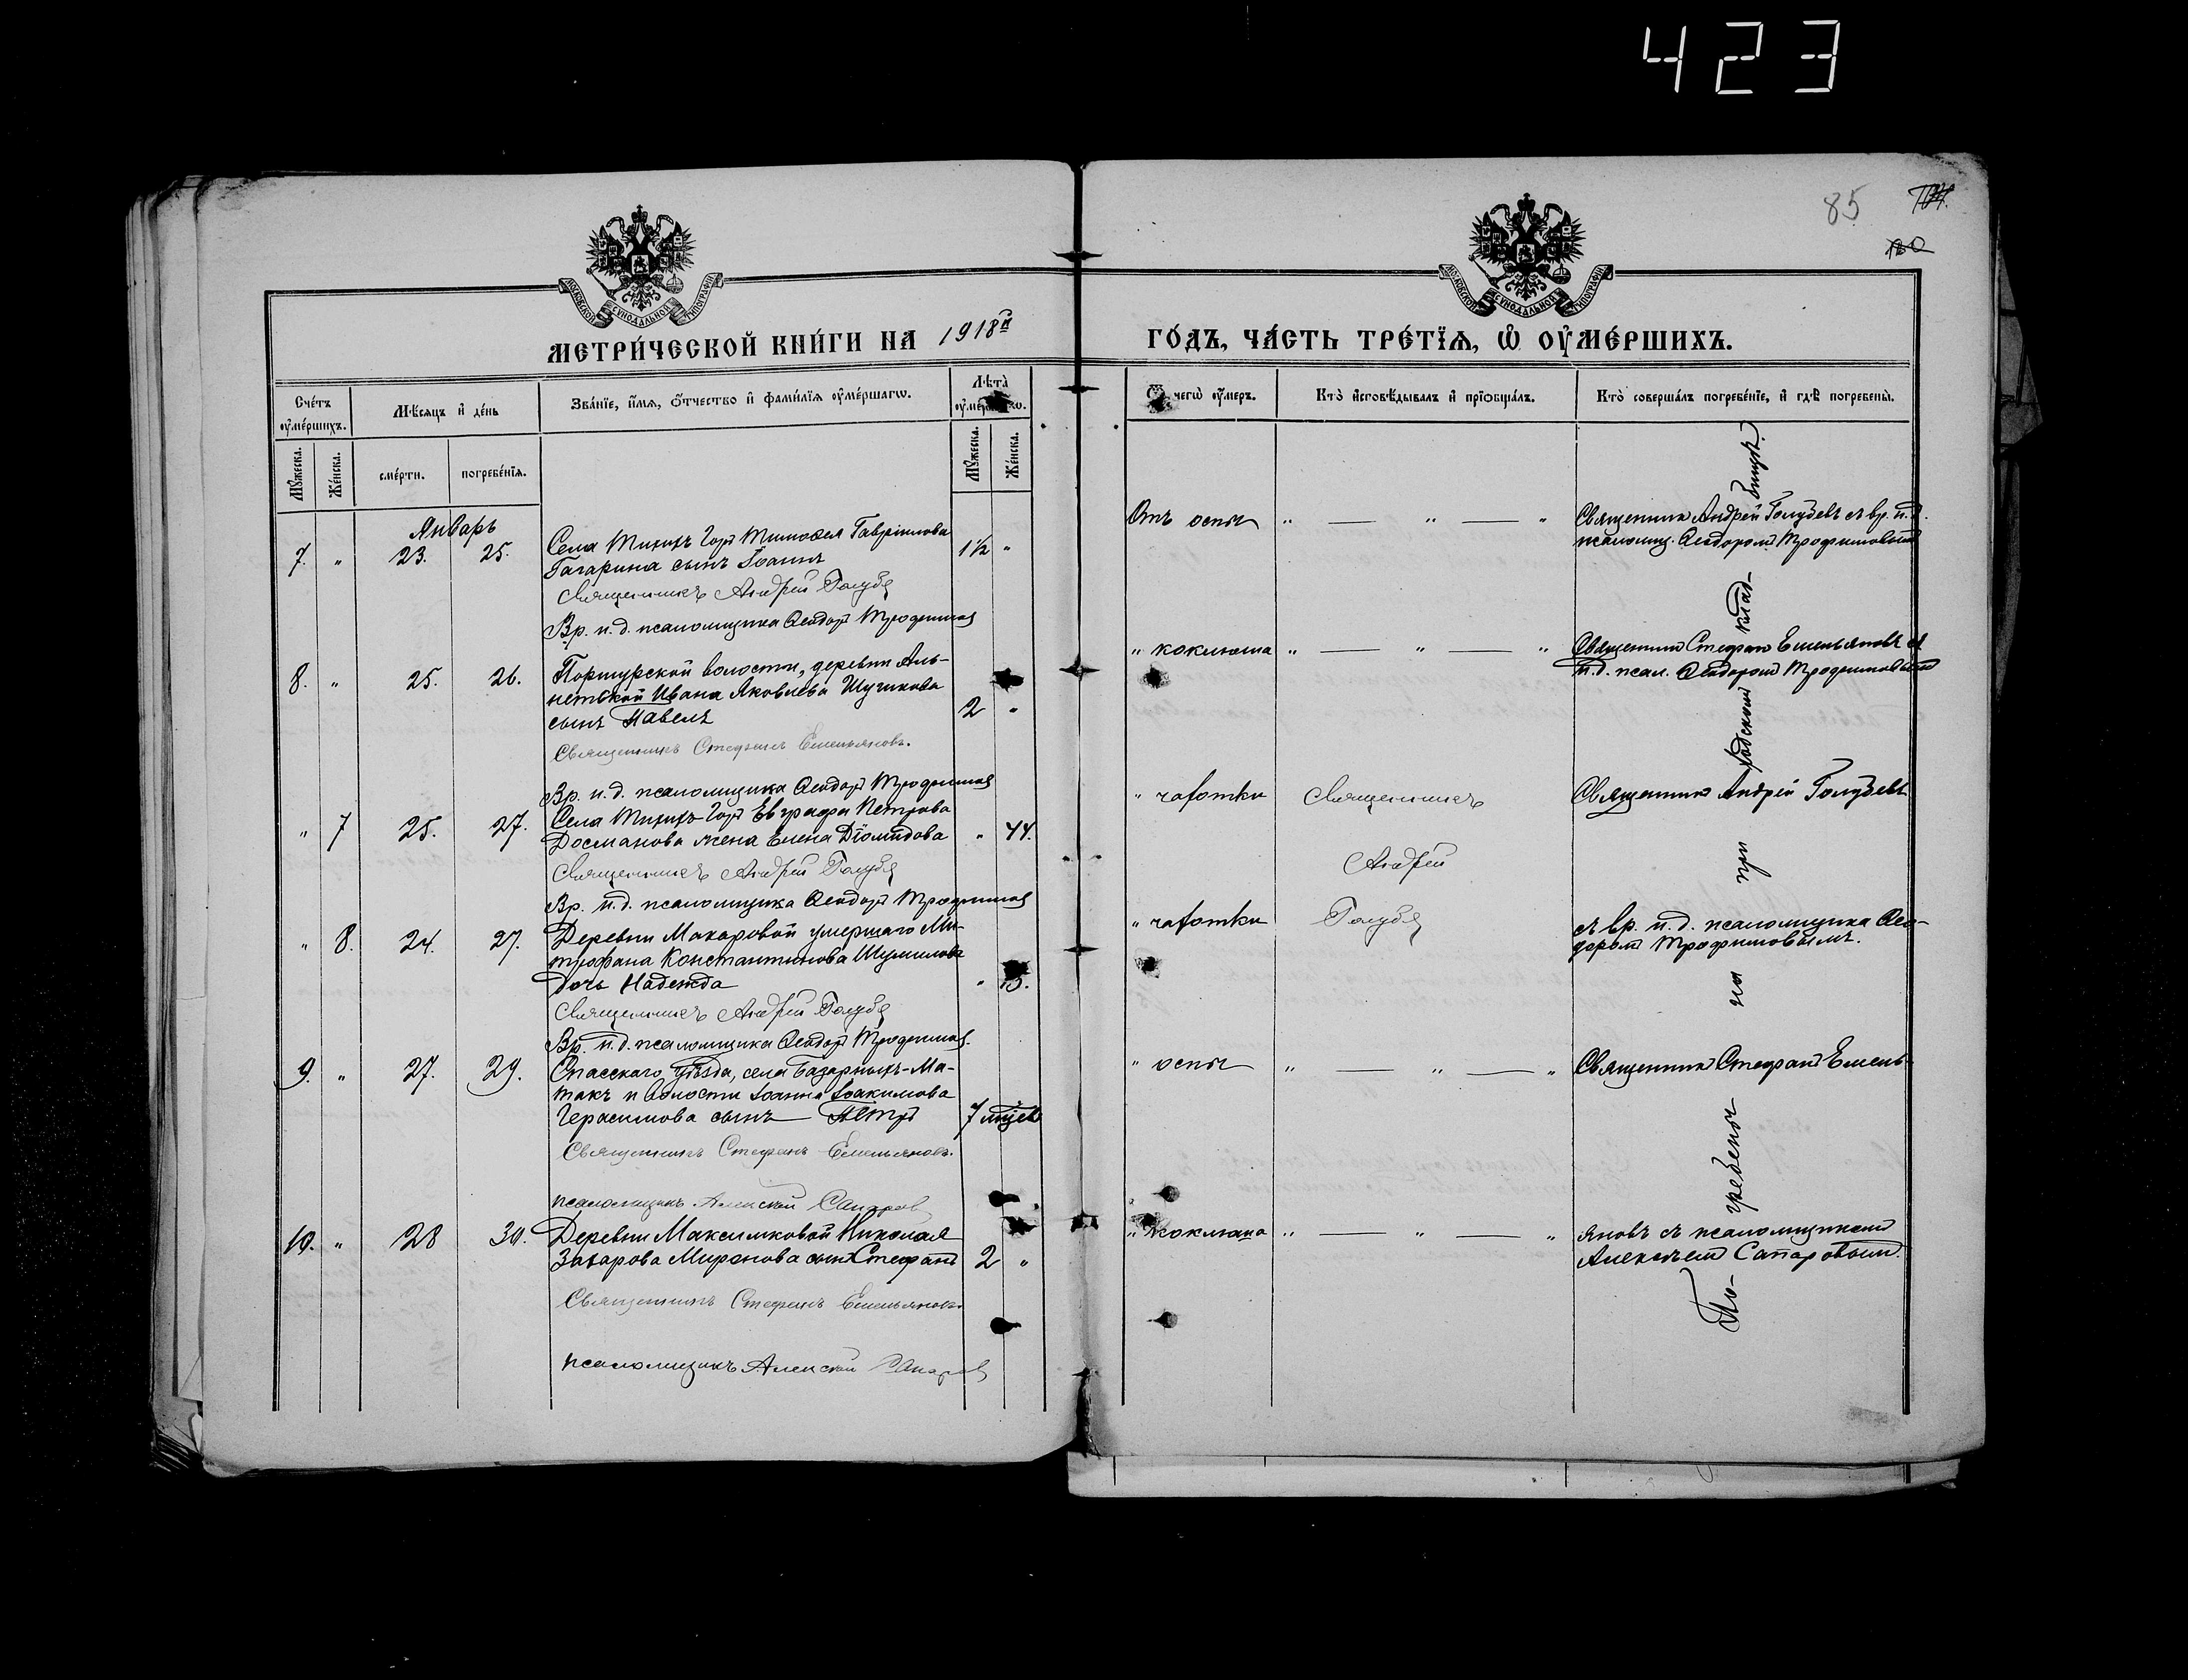 423
85
МОСКОВСКОЙ СѴНОДАЛЬНОЙ ТИПОГРАФІИ
МОСКОВСКОЙ СѴНОДАЛЬНОЙ ТИПОГРАФІИ
МЕТРИ́ЧЕСКОЙ КНИ́ГИ НА 1918й
ГО́ДЪ, ЧА́СТЬ ТРЕ́ТЇѦ, Ѡ҆ ОУ҆МЕ́РШИХЪ.
Сче́тъ оу҆ме́ршихъ.
Мѣ́сяцъ и҆ де́нь
Зва́нїе, и҆́мѧ, ѻ҆́тчество и҆ фами́лїѧ оу҆ме́ршагѡ.
Лѣ́та оу҆ме́ршагѡ.
Ѿ чегѡ̀ оу҆́меръ.
Кто̀ и҆сповѣ́дывалъ и҆ прїѡбща́лъ.
Кто̀ соверша́лъ погребе́нїе, и҆ гдѣ̀ погребены̀.
Му́жеска.
Же́нска.
сме́рти.
погребе́нїѧ.
Му́жеска.
Же́нска.
Январь
7. " 23. 25.
Села Тихихъ Горъ Тимоѳея Гавріилова
Гагарина сынъ Іоаннъ
1½ "
Священникъ Андрей Голубе
Вр. и. д. псаломщика Ѳеодоръ Трофимов
Отъ оспы " — " — "
Священник Андрей Голубевъ съ вр. и. д.
псаломщ. Ѳеодоромъ Трофимовымъ
8. " 25. 26.
волости, деревни Аль-
Ивана Яковлева
сынъ Павелъ
2 "
Священникъ Стефанъ Емельяновъ.
Вр. и. д. псаломщика Ѳеодоръ Трофимов
" коклюша " — " — "
Священник Стефан Емельяновъ съ
и. д. псал. Ѳеодоромъ Трофимовымъ
" 7 25. 27.
Села Тихихъ Горъ Евграфа Петрова
Досманова жена Елена Діомидова
" 44.
Священникъ Андрей Голубе
Вр. и. д. псаломщика Ѳеодоръ Трофимов
" чахотки
Священникъ
Андрей
Голубе
Священник Андрей Голубевъ
" 8. 24. 27.
Деревни Макаровой умершаго Ми-
трофана Константинова Шумилова
дочь Надежда
Священникъ Андрей Голубе
Вр. и. д. псаломщика Ѳеодоръ Трофимов.
" чахотки
съ вр. и. д. псаломщика Ѳео-
доромъ Трофимовымъ.
9. " 27. 29.
Спасскаго уѣзда, села Базарныхъ-Ма-
такъ и волости Іоанна Іоакимова
Герасимова сынъ Петръ
7 мѣсцев
Священникъ Стефанъ Емельяновъ.
псаломщикъ Алексѣй Сапаров
" оспы " — " — "
Священник Стефанъ Емель-
10. " 28 30.
Деревни Максимковой Николая
Захарова Миронова сынъ Стефанъ
2 "
Священникъ Стефанъ Емельяновъ
псаломщикъ Алексѣй Сапаров
" коклюша " — " — "
яновъ съ псаломщикомъ
Алексѣемъ Сапаровым.
По-
гребены
на
при-
ходском
клад-
бищѣ.